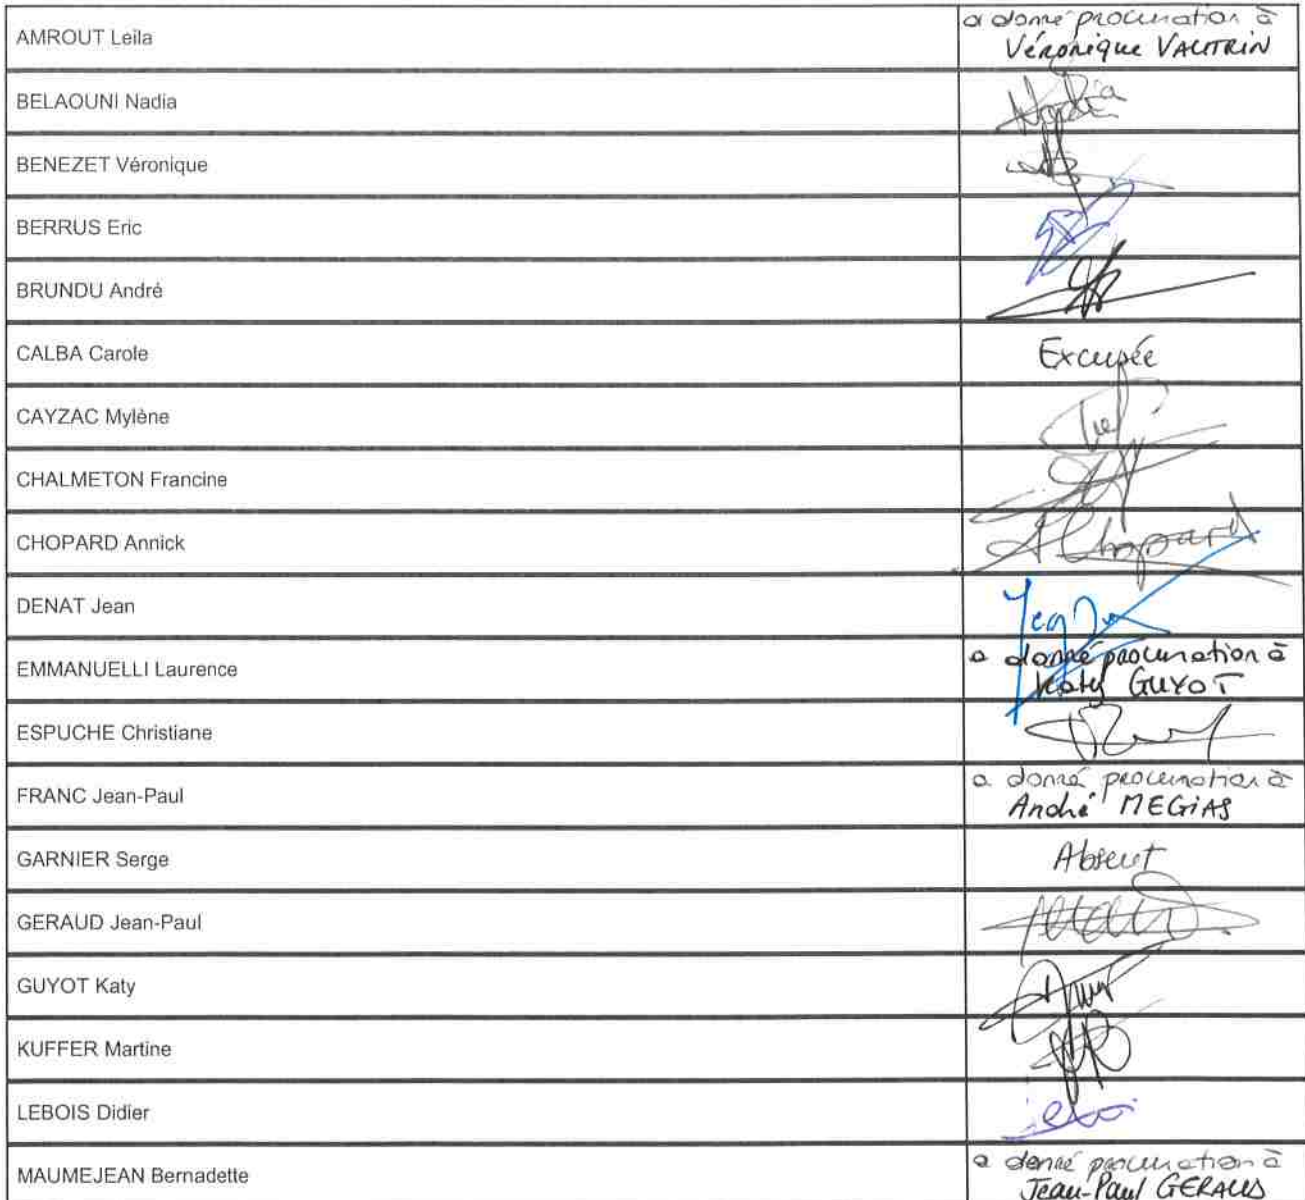 AMROUT Leila
a donné procuration à
Véronique VAUTRIN
BELAOUNI Nadia
Nadia
BENEZET Véronique
BERRUS Eric
BRUNDU André
CALBA Carole
Excusée
CAYZAC Mylène
CHALMETON Francine
CHOPARD Annick
A Chopard
DENAT Jean
EMMANUELLI Laurence
a donné procuration à
Katy GUYOT
ESPUCHE Christiane
FRANC Jean-Paul
a donné procuration à
André MEGIAS
GARNIER Serge
Absent
GERAUD Jean-Paul
GUYOT Katy
KUFFER Martine
LEBOIS Didier
MAUMEJEAN Bernadette
a donné procuration à
Jean-Paul GERAUD